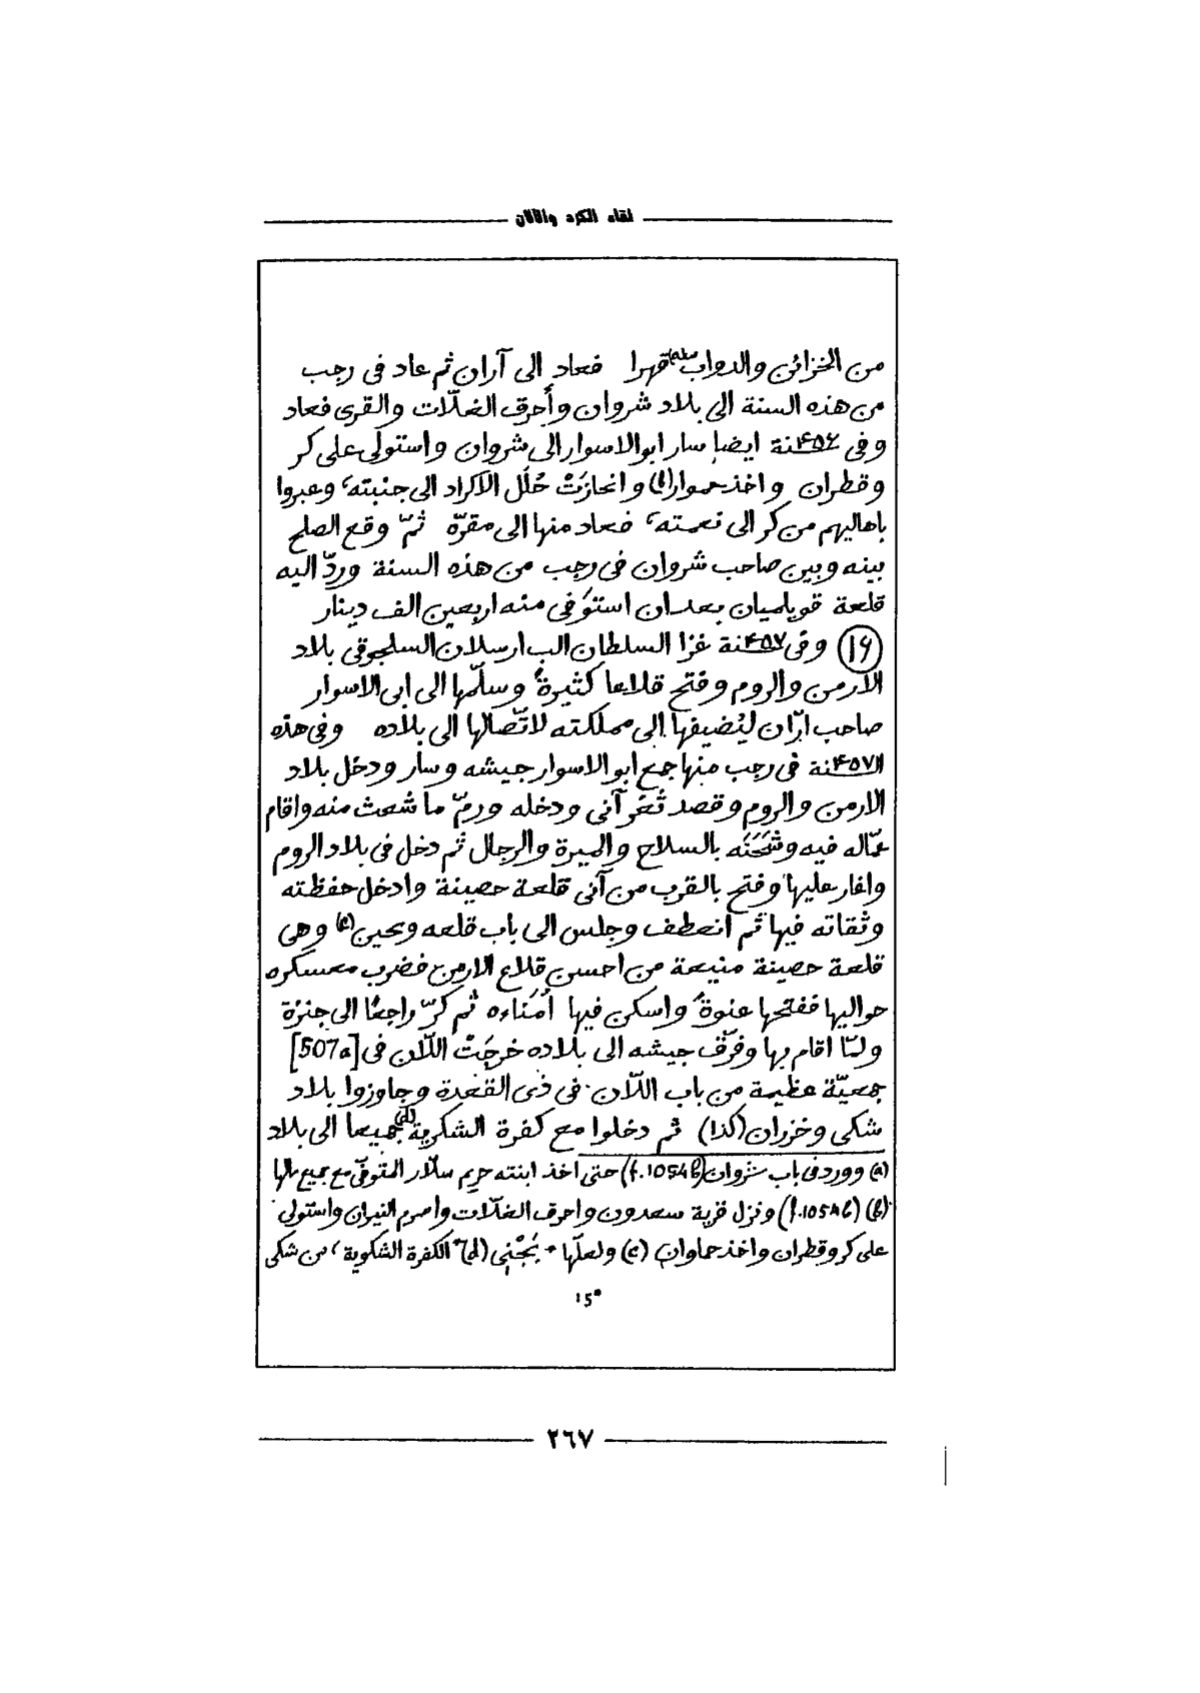 لقاء الكرد والالان
من الخزائن والدواب (a) قهرا فعاد الى آران ثم عاد فى رجب
من هذه السنة الى بلاد شروان وأحرق الغلّات والقرى فعاد
وفى ۴۵۶ـنة ايضا سار ابو الاسوار الى شروان واستولى على كر
وقطران واخذ حموار(b) وانحازَتْ حُلَل الاكراد الى جنبته، وعبروا
باهاليهم من كر الى نعمته، فعاد منها الى مقرّه ثمّ وقع الصلح
بينه وبين صاحب شروان فى رجب من هذه السنة وردّ اليه
قلعة قويلميان بعد ان استوَفى منه اربعين الف دينار
(۱۶) وفى ۴۵۷ـنة غزا السلطان الب ارسلان السلجوقى بلاد
الارمن والروم وفتح قلاعا كثيرة، وسلّمها الى ابى الاسوار
صاحب ارّان ليُضيفها الى مملكته لاتّصالها الى بلاده وفى هذه
ال۴۵۷ـنة فى رجب منها جمع ابو الاسوار جيشه وسار ودخل بلاد
الارمن والروم وقصد ثَغر آنى ودخله ورمّ ما شعث منه واقام
عمّاله فيه وشَحَنَه بالسلاح والميرة والرجال ثم دخل فى بلاد الروم
واغار عليها وفتح بالقرب من آنى قلعة حصينة وادخل حفظته
وثقاته فيها ثم انعطف وجلس الى باب قلعه ويجين(c) وهى
قلعة حصينة منيعة من احسن قلاع الارمن فضرب معسكره
حواليها ففتحها عنوةً واسكن فيها اُمَناءه ثم كرّ راجعًا الى جنزة
ولمّا اقام بها وفرّق جيشه الى بلاده خرجَتْ اللّان فى [507a]
جمعيّة عظيمة من باب اللّان فى ذى القعدة وجاوزوا بلاد
شكى وخزران (كذا) ثم دخلوا مع كفرة الشكرية(d) جميعا الى بلاد
(a) وورد فى باب شروان (f.1054b) حتى اخذ ابنته حريم سلّار المتوفّى مع جميع مالها
(b) (f.1054b) ونزل قرية سعدون واحرق الغلّات واضرم النيران واستولى
على كر وقطران واخذ حماوان (c) ولعلّها " بَجْنى (d) "الكفرة الشكوية" من شكى
15*
٢٦٧